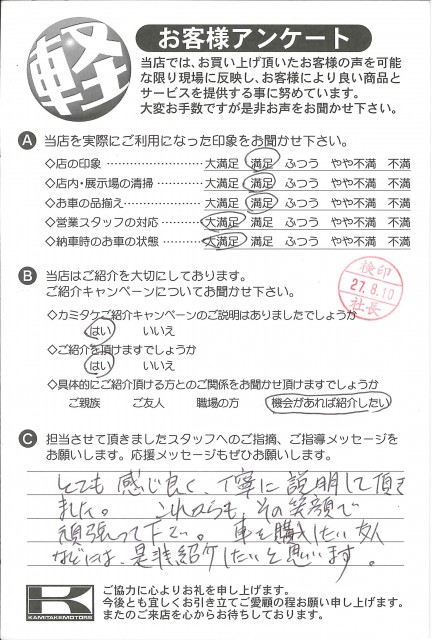 軽
お客様アンケート
当店では、お買い上げ頂いたお客様の声を可能
な限り現場に反映し、お客様により良い商品と
サービスを提供する事に努めています。
大変お手数ですが是非お声をお聞かせ下さい。
A 当店を実際にご利用になった印象をお聞かせ下さい。
◇店の印象 ……………………… 大満足 満足 ふつう やや不満 不満
◇店内・展示場の清掃 ………… 大満足 満足 ふつう やや不満 不満
◇お車の品揃え ………………… 大満足 満足 ふつう やや不満 不満
◇営業スタッフの対応 ………… 大満足 満足 ふつう やや不満 不満
◇納車時のお車の状態 ………… 大満足 満足 ふつう やや不満 不満
B 当店はご紹介を大切にしております。
ご紹介キャンペーンについてお聞かせ下さい。
検印
27.8.10
社長
◇カミタケご紹介キャンペーンのご説明はありましたでしょうか
はい いいえ
◇ご紹介を頂けますでしょうか
はい いいえ
◇具体的にご紹介頂ける方とのご関係をお聞かせ頂けますでしょうか
ご親族 ご友人 職場の方 機会があれば紹介したい
C 担当させて頂きましたスタッフへのご指摘、ご指導メッセージを
お願いします。応援メッセージもぜひお願いします。
とても感じ良く、丁寧に説明して頂き
ました。 これからも、その笑顔で
頑張って下さい。 車を購入したい友人
などには、是非紹介したいと思います。
K
KAMITAKEMOTORS
ご協力に心よりお礼を申し上げます。
今後とも宜しくお引き立てご愛顧の程お願い申し上げます。
またのご来店を心からお待ちしております。